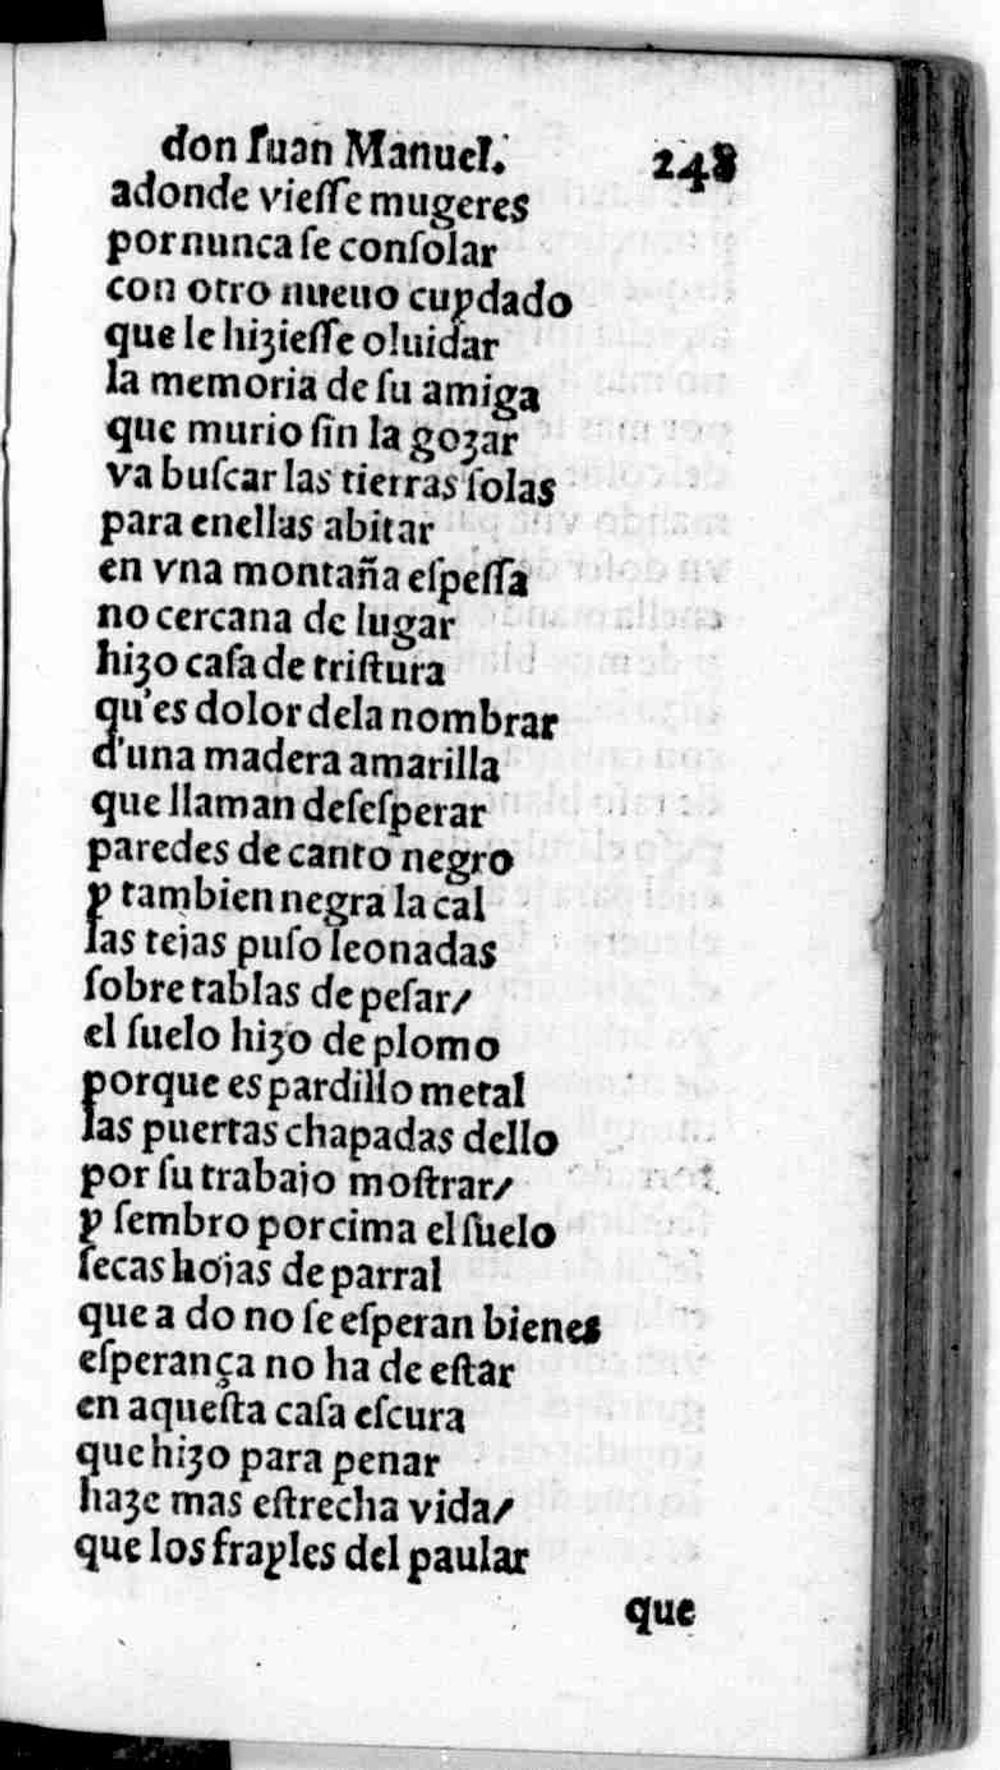 don Iuan Manuel. 248
adonde vieſſe mugeres
por nunca ſe conſolar
con otro nueuo cuydado
que le hizieſſe oluidar
la memoria de ſu amiga
que murio ſin la gozar
va buſcar las tierras ſolas
para enellas abitar
en vna montaña eſpeſſa
no cercana de lugar
hizo caſa de triſtura
qu'es dolor dela nombrar
d'una madera amarilla
que llaman deſeſperar
paredes de canto negro
y tambien negra la cal
las tejas puſo leonadas
ſobre tablas de peſar/
el ſuelo hizo de plomo
porque es pardillo metal
las puertas chapadas dello
por ſu trabajo moſtrar/
y ſembro por cima el ſuelo
ſecas hojas de parral
que a do no ſe eſperan bienes
eſperança no ha de eſtar
en aqueſta caſa eſcura
que hizo para penar
haze mas eſtrecha vida/
que los frayles del paular
que